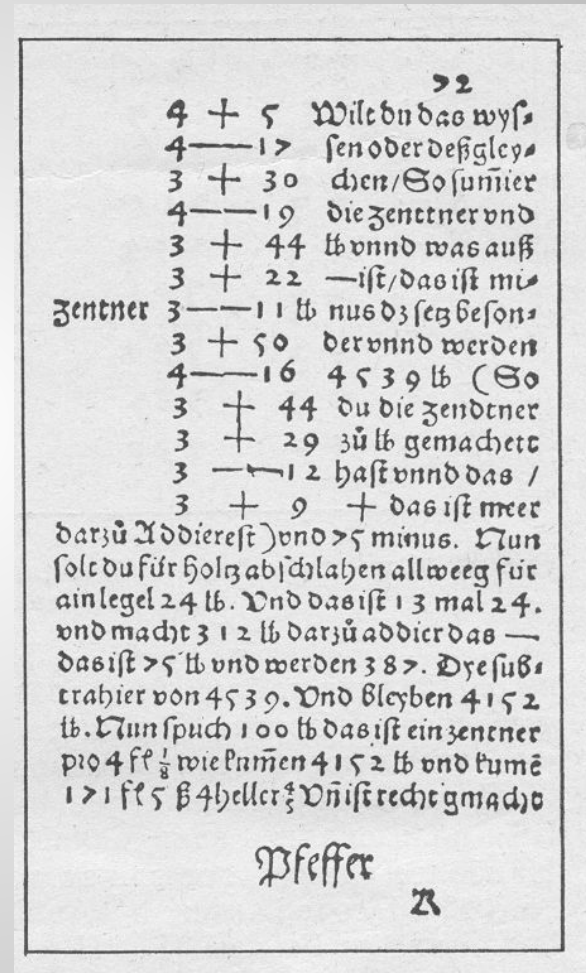 72
4 + 5 Wilt du das wyſ⸗
4 — 17 ſen oder deßgley⸗
3 + 30 chen/ So ſum̃ier
4 — 19 die Zenttner vnd
3 + 44 lb vnnd was auß
3 + 22 — iſt/ das iſt mi⸗
Zentner 3 — 11 lb nus dz ſetz beſon⸗
3 + 50 der vnnd werden
4 — 16 4539 lb (So
3 + 44 du die Zendtner
3 + 29 zů lb gemachett
3 — 12 haſt vnnd das /
3 + 9 + das iſt meer
darzů Addiereſt) vnd 75 minus. Nun
ſolt du für Holtz abſchlahen allweeg für
ain legel 24 lb. Vnd das iſt 13 mal 24.
vnd macht 312 lb darzů addier das —
das iſt 75 lb vnd werden 387. Dye ſub⸗
trahier von 4539. Vnd bleyben 4152
lb. Nun ſpuch 100 lb das iſt ein zentner
pro 4 fl ⅛ wie kum̃en 4152 lb vnd kumē
171 fl 5 ß 4 heller ⅘ Vñ iſt recht gmacht
Pfeffer
R